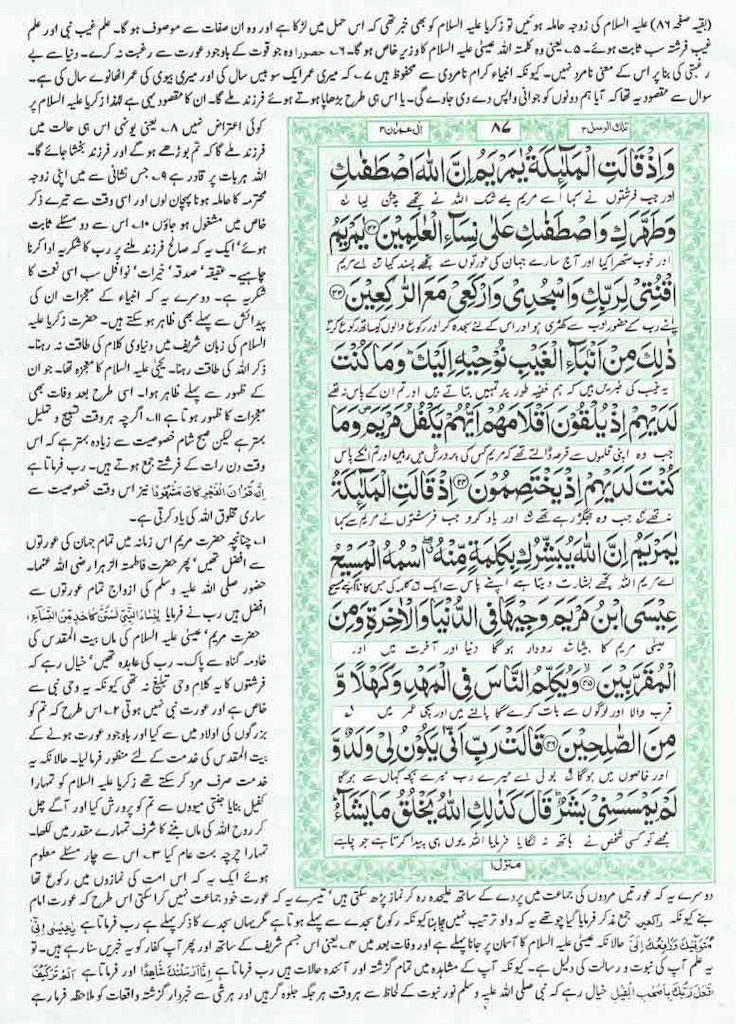 (بقیہ صفحہ ۸۶) علیہ السلام کی زوجہ حاملہ ہوئیں تو زکریا علیہ السلام کو بھی خبر تھی کہ اس حمل میں لڑکا ہے اور وہ ان صفات سے موصوف ہو گا۔ علم غیب نبی اور علم
غیب فرشتہ سب ثابت ہوئے۔ ۵۔ یعنی وہ کلمتہ اللہ عیسیٰ علیہ السلام کا وزیر خاص ہو گا۔ ۶۔ حصورا وہ جو قوت کے باوجود عورت سے رغبت نہ کرے۔ دنیا سے بے
رغبتی کی بنا پر اس کے معنی نامرد نہیں۔ کیونکہ انبیاء کرام نامردی سے محفوظ ہیں ۷۔ کہ میری عمر ایک سو بیس سال کی اور میری بیوی کی عمر اٹھانوے سال کی ہے۔
سوال سے مقصود یہ تھا کہ آیا ہم دونوں کو جوانی واپس دے دی جاوے گی۔ یا اس ہی طرح بڑھاپا ہوتے ہوئے فرزند ملے گا۔ ان کا مقصود یہی ہے لہٰذا زکریا علیہ السلام پر
کوئی اعتراض نہیں ۸۔ یعنی یونہی اس ہی حالت میں
فرزند ملے گا کہ تم بوڑھے ہو گے اور فرزند بخشا جائے گا۔
اللہ ہر بات پر قادر ہے ۹۔ جس نشانی سے میں اپنی زوجہ
محترمہ کا حاملہ ہونا پہچان لوں اور اسی وقت سے تیرے ذکر
خاص میں مشغول ہو جاؤں ۱۰۔ اس سے دو مسئلے ثابت
ہوئے' ایک یہ کہ صالح فرزند ملنے پر رب کا شکریہ ادا کرنا
چاہیے۔ عقیقہ' صدقہ' خیرات' نوافل سب اسی نعمت کا
شکریہ ہے۔ دوسرے یہ کہ انبیاء کے معجزات ان کی
پیدائش سے پہلے بھی ظاہر ہو سکتے ہیں۔ حضرت زکریا علیہ
السلام کی زبان شریف میں دنیاوی کلام کی طاقت نہ رہنا۔
ذکر اللہ کی طاقت رہنا۔ یحییٰ علیہ السلام کا معجزہ تھا۔ جو ان
کے ظہور سے پہلے ظاہر ہوا۔ اسی طرح بعد وفات بھی
معجزات کا ظہور ہوتا ہے ۱۱۔ اگرچہ ہر وقت تسبیح و تہلیل
بہتر ہے لیکن صبح شام خصوصیت سے زیادہ بہتر ہے کہ اس
وقت دن رات کے فرشتے جمع ہوتے ہیں۔ رب فرماتا ہے
اِنَّ قُرْاٰنَ الْفَجْرِ كَانَ مَشْهُوْدًا نیز اس وقت خصوصیت سے
ساری مخلوق اللہ کی یاد کرتی ہے۔
۱۔ چنانچہ حضرت مریم اس زمانہ میں تمام جہان کی عورتوں
سے افضل تھیں' پھر حضرت فاطمتہ الزہرا رضی اللہ عنہا۔
حضور صلی اللہ علیہ وسلم کی ازواج تمام عورتوں سے
افضل ہیں رب نے فرمایا يٰنِسَآءَ النَّبِيِّ لَسْتُنَّ كَاَحَدٍ مِّنَ النِّسَآءِ
حضرت مریم' عیسیٰ علیہ السلام کی ماں بیت المقدس کی
خادمہ گناہ سے پاک۔ رب کی عابدہ تھیں' خیال رہے کہ
فرشتوں کا یہ کلام وحی تبلیغ نہ تھی کیونکہ یہ وحی نبی سے
خاص ہے اور عورت نبی نہیں ہوتی ۲۔ اس طرح کہ تم کو
بزرگوں کی اولاد میں سے کیا اور باوجود عورت ہونے کے
بیت المقدس کی خدمت کے لئے منظور فرما لیا۔ حالانکہ یہ
خدمت صرف مرد کر سکتے تھے زکریا علیہ السلام کو تمہارا
کفیل بنایا جنتی میووں سے تم کو پرورش کیا اور آگے چل
کر روح اللہ کی ماں بننے کا شرف تمہارے مقدر میں لکھا۔
تمہارا چرچہ بہت عام کیا ۳۔ اس سے چار مسئلے معلوم
ہوئے ایک یہ کہ اس امت کی نمازوں میں رکوع تھا
تلك الرسل ۳
۸۷
اٰل عمرٰن ۳
وَاِذْ قَالَتِ الْمَلٰٓئِكَةُ يٰمَرْيَمُ اِنَّ اللّٰهَ اصْطَفٰىكِ
اور جب فرشتوں نے کہا اے مریم بے شک اللہ نے تجھے چن لیا ل
وَطَهَّرَكِ وَاصْطَفٰىكِ عَلٰى نِسَآءِ الْعٰلَمِيْنَ ۴۲ يٰمَرْيَمُ
اور خوب ستھرا کیا اور آج سارے جہان کی عورتوں سے تجھے پسند کیا ۲ اے مریم
اقْنُتِيْ لِرَبِّكِ وَاسْجُدِيْ وَارْكَعِيْ مَعَ الرّٰكِعِيْنَ ۴۳
اپنے رب کے حضور ادب سے کھڑی ہو اور اس کے لئے سجدہ کر اور رکوع والوں کیساتھ رکوع کر
ذٰلِكَ مِنْ اَنْۢبَآءِ الْغَيْبِ نُوْحِيْهِ اِلَيْكَ وَمَا كُنْتَ
یہ غیب کی خبریں ہیں کہ ہم خفیہ طور پر تمہیں بتاتے ہیں اور تم ان کے پاس نہ تھے
لَدَيْهِمْ اِذْ يُلْقُوْنَ اَقْلَامَهُمْ اَيُّهُمْ يَكْفُلُ مَرْيَمَ وَمَا
جب وہ اپنی قلموں سے قرعہ ڈالتے تھے کہ مریم کس کی پرورش میں رہیں اور تم انکے پاس
كُنْتَ لَدَيْهِمْ اِذْ يَخْتَصِمُوْنَ ۴۴ اِذْ قَالَتِ الْمَلٰٓئِكَةُ
نہ تھے جب وہ جھگڑ رہے تھے اور یاد کرو جب فرشتوں نے مریم سے کہا
يٰمَرْيَمُ اِنَّ اللّٰهَ يُبَشِّرُكِ بِكَلِمَةٍ مِّنْهُ اسْمُهُ الْمَسِيْحُ
اے مریم اللہ تجھے بشارت دیتا ہے اپنے پاس سے ایک کلمہ کی جس کا نام ہے مسیح
عِيْسَى ابْنُ مَرْيَمَ وَجِيْهًا فِي الدُّنْيَا وَالْاٰخِرَةِ وَمِنَ
عیسیٰ مریم کا بیٹا رو دار ہو گا دنیا اور آخرت میں اور
الْمُقَرَّبِيْنَ ۴۵ وَيُكَلِّمُ النَّاسَ فِي الْمَهْدِ وَكَهْلًا وَّ
قرب والا اور لوگوں سے بات کرے گا پالنے میں اور پکی عمر میں
مِنَ الصّٰلِحِيْنَ ۴۶ قَالَتْ رَبِّ اَنّٰى يَكُوْنُ لِيْ وَلَدٌ وَّ
اور خاصوں میں ہو گا بولی اے میرے رب میرے بچہ کہاں سے ہو گا
لَمْ يَمْسَسْنِيْ بَشَرٌ قَالَ كَذٰلِكِ اللّٰهُ يَخْلُقُ مَا يَشَآءُ
مجھے تو کسی شخص نے ہاتھ نہ لگایا فرمایا اللہ یوں ہی پیدا کرتا ہے جو چاہے
منزل ۱
دوسرے یہ کہ عورتیں مردوں کی جماعت میں پردے کے ساتھ علیحدہ رہ کر نماز پڑھ سکتی ہیں' تیسرے یہ کہ عورت خود جماعت نہیں کرا سکتی اس طرح کہ عورت امام
بنے کیونکہ راکعین جمع مذکر فرمایا گیا چوتھے یہ کہ واؤ ترتیب نہیں چاہتا کیونکہ رکوع سجدے سے پہلے ہوتا ہے مگر یہاں سجدے کا ذکر پہلے ہے رب فرماتا ہے يٰعِيْسٰى اِنِّيْ
مُتَوَفِّيْكَ وَرَافِعُكَ اِلَيَّ حالانکہ عیسیٰ علیہ السلام کا آسمان پر جانا پہلے ہے اور وفات بعد میں ۴۔ یعنی اس جسم شریف کے ساتھ اور پھر آپ کفار کو یہ خبریں سنا رہے ہیں۔ تو
یہ علم آپ کی نبوت و رسالت کی دلیل ہے۔ کیونکہ آپ کے مشاہدہ میں تمام گزشتہ اور آئندہ حالات ہیں رب فرماتا ہے اِنَّا اَرْسَلْنٰكَ شَاهِدًا اور فرماتا ہے اَلَمْ تَرَ كَيْفَ
فَعَلَ رَبُّكَ بِاَصْحٰبِ الْفِيْلِ خیال رہے کہ نبی صلی اللہ علیہ وسلم نور نبوت کے لحاظ سے ہر وقت ہر جگہ جلوہ گر ہیں اور ہر شی سے خبردار گزشتہ واقعات کو ملاحظہ فرما رہے